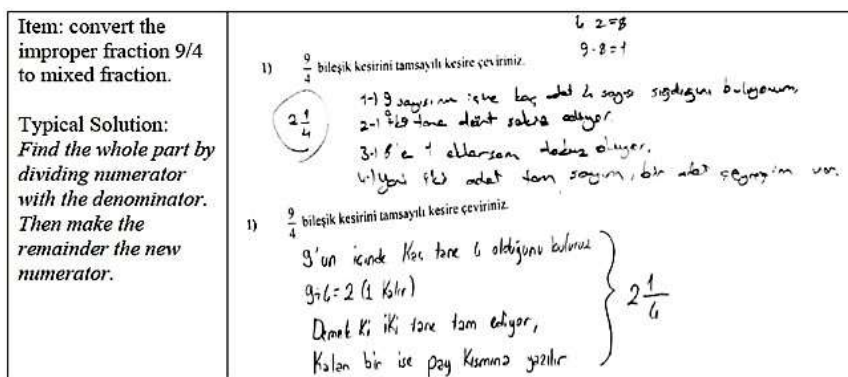 Item: convert the
improper fraction 9/4
to mixed fraction.
Typical Solution:
Find the whole part by
dividing numerator
with the denominator.
Then make the
remainder the new
numerator.
4 2=8
9-8=1
1) 9/4 bileşik kesirini tamsayılı kesire çeviriniz.
2 1/4
1-) 9 sayısının içine kaç adet 4 sayısı sığdığını buluyorum,
2-) tane dört sekiz ediyor.
3-) 8'e 1 eklersem dokuz oluyor,
4-) Yani iki adet tam sayım, bir adet çeyreğim var.
1) 9/4 bileşik kesirini tamsayılı kesire çeviriniz.
9'un içinde Kaç tane 4 olduğunu buluruz
9÷4=2 (1 Kalır)
Demek Ki iki tane tam ediyor,
Kalan bir ise pay Kısmına yazılır
2 1/4